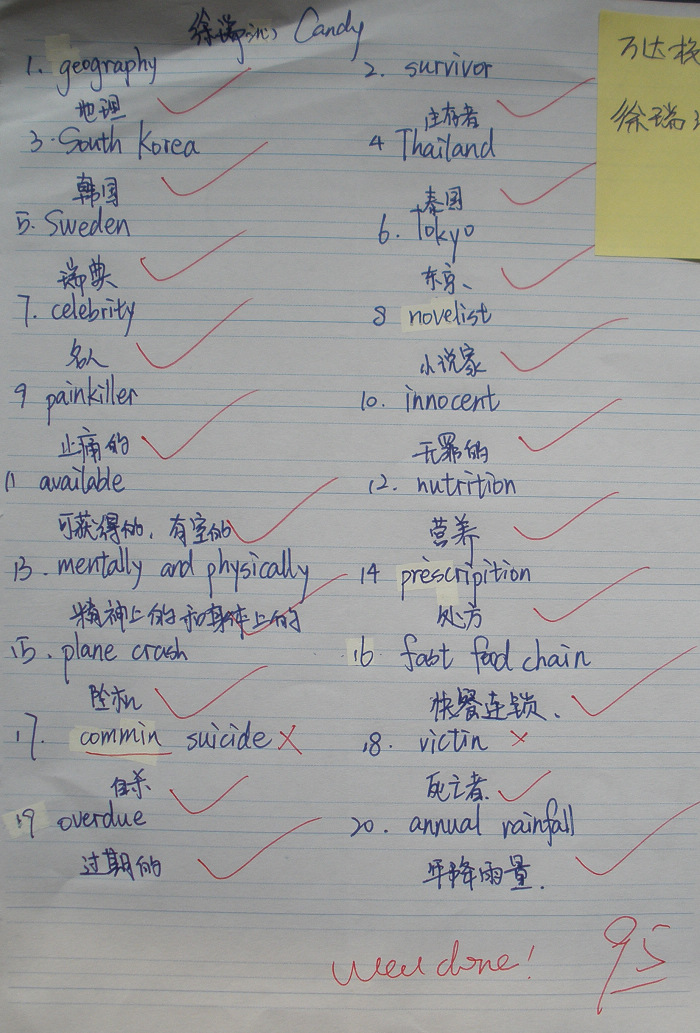 徐瑞 Candy
万达
徐瑞
1. geography 2. survivor
地理 生存者
3. South Korea 4 Thailand
韩国 泰国
5. Sweden 6. Tokyo
瑞典 东京、
7. celebrity 8 novelist
名人 小说家
9 painkiller 10. innocent
止痛的 无罪的
11 available 12. nutrition
可获得的, 有空的 营养
13. mentally and physically 14 prescripition
精神上的和身体上的 处方
15. plane crash 16 fast food chain
坠机 快餐连锁、
17. commin suicide 18. victin
自杀 死亡者
19 overdue 20. annual rainfall
过期的 年降雨量.
Well done! 95